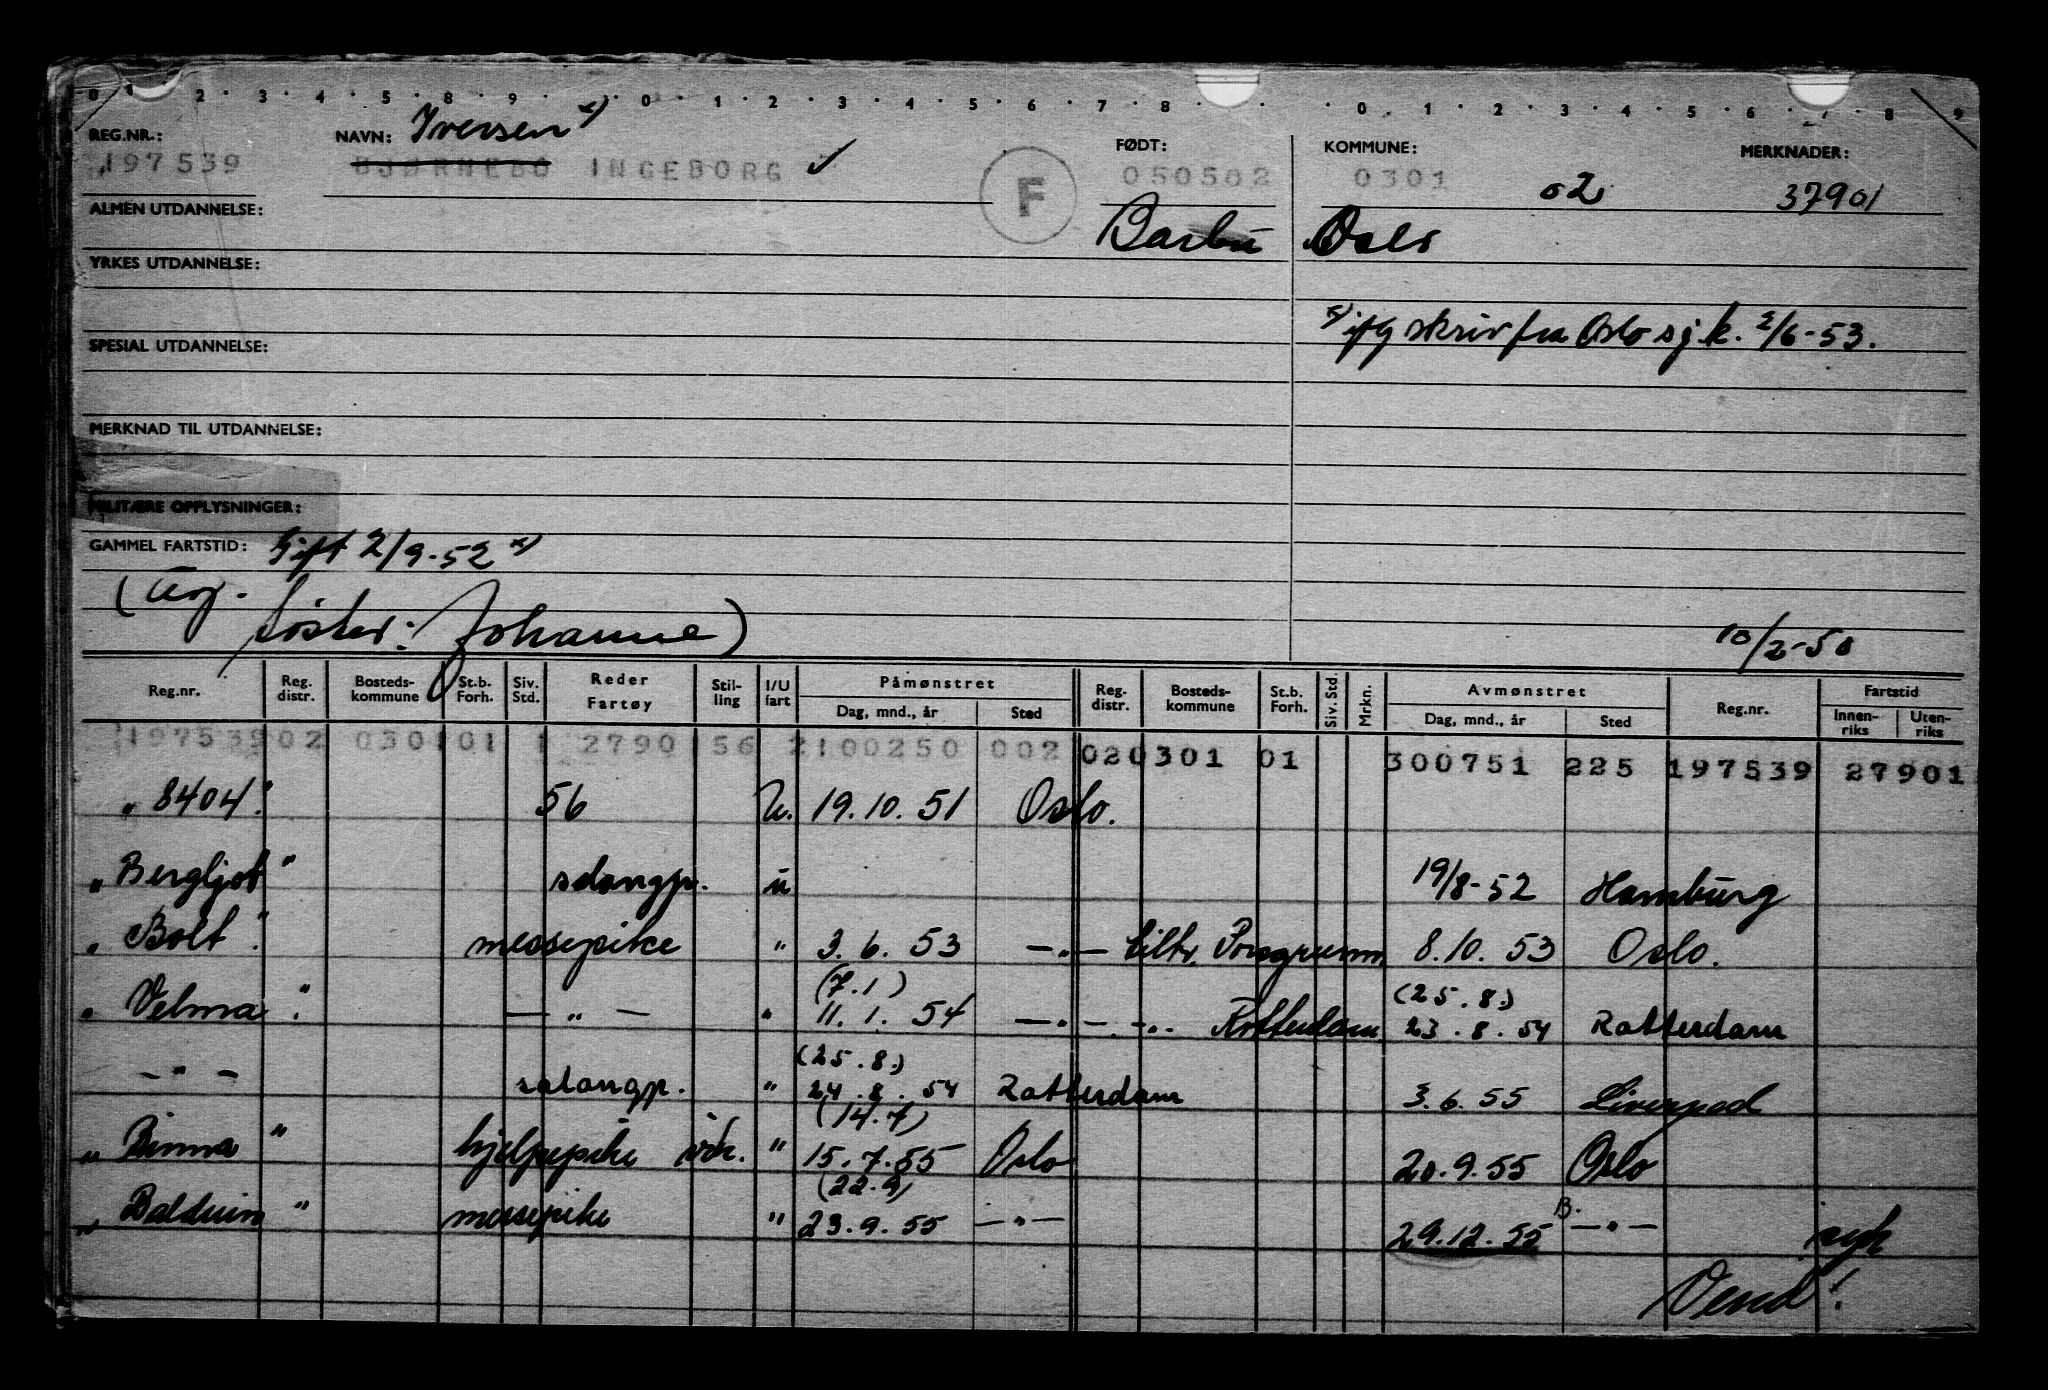 0 1 2 3 4 5 8 9 0 1 2 3 4 5 6 7 8 0 1 2 3 4 5 6 7 8 9
REG.NR.: NAVN: Iversen x) FØDT: KOMMUNE: MERKNADER:
197539 BJØRNEBO INGEBORG ✓ F 050502 0301 02 37901
ALMEN UTDANNELSE: Barbu Oslo
YRKES UTDANNELSE:
x) ifg skriv fra Oslo sj.k. 2/6-53.
SPESIAL UTDANNELSE:
MERKNAD TIL UTDANNELSE:
MILITÆRE OPPLYSNINGER:
GAMMEL FARTSTID: Gift 2/9-52 x)
søster: Johanne)
10/2-50
Reg.nr. Reg. distr. Bosteds-kommune St.b. Forh. Siv. Std. Reder Fartøy Stil-ling I/U fart Påmønstret Dag, mnd., år Sted Reg. distr. Bosteds-kommune St.b. Forh. Siv. Std. Mrkn. Avmønstret Dag, mnd., år Sted Reg.nr. Fartstid Innen-riks Uten-riks
197539 02 0301 01 1 2790 56 2100250 002 020301 01 300751 225 197539 27901
" 8404 " 56 U. 19.10.51 Oslo.
" Bergljot " salongp. u 19/8-52 Hamburg
" Bolt " messepike " 3.6.53 — " — tiltr. Porsgrunn 8.10.53 Oslo.
(7.1) (25.8.)
" Velma " — " — " 11.1.54 — " — - " - Rotterdam 23.8.54 Rotterdam
(25.8.)
— " — salongp. " 24.8.54 Rotterdam 3.6.55 Liverpool
(14.7)
" Binna " hjelpepike vik. " 15.7.55 Oslo 20.9.55 Oslo
(22.9)
" Balduin " messepike " 23.9.55 — " — 29.12.55 B. — " — syk
Vend!